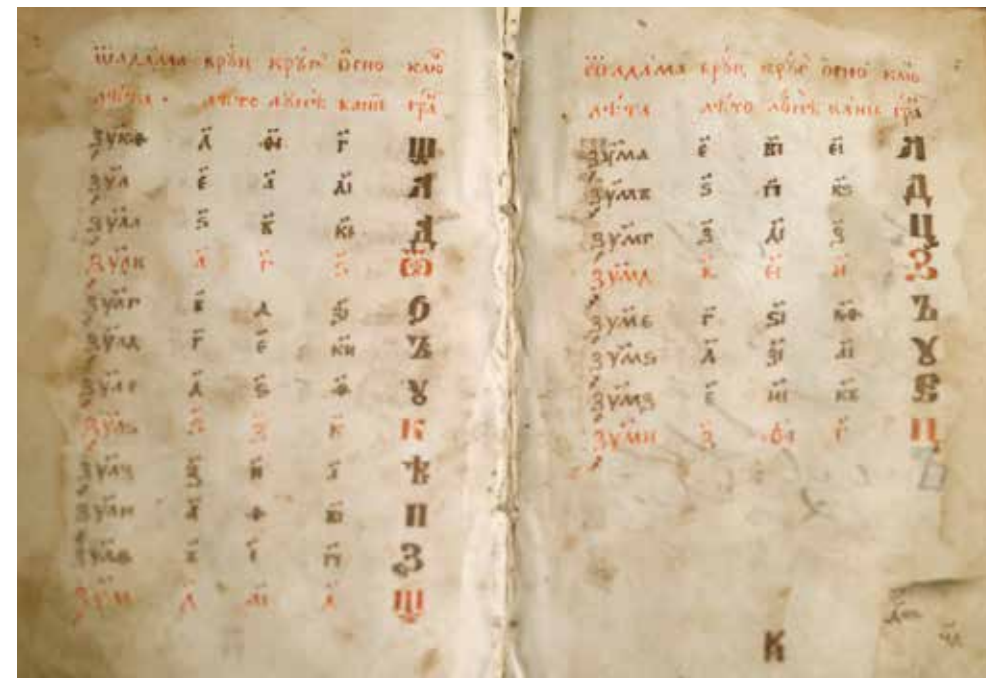 ѿадама крꙋⷢ҇ц крꙋⷢ҇ ѻсно клю
лѣта лѣто лꙋнѣ ванїе гра
҂зу҃кѳ д҃ ѳ҃і г҃ Щ
҂зу҃л е҃ а҃ д҃і Л
҂зу҃ла ѕ҃ в҃ к҃е Д
҂зу҃лв а҃ г҃ ѕ҃ Ѿ
҂зу҃лг в҃ д҃ з҃і О
҂зу҃лд г҃ е҃ к҃и Ъ
҂зу҃ле д҃ ѕ҃ ѳ҃ Ꙋ
҂зу҃лѕ ѕ҃ з҃ к҃ К
҂зу҃лз з҃ и҃ а҃ Ѣ
҂зу҃ли а҃ ѳ҃ в҃і П
҂зу҃лѳ в҃ і҃ к҃г З
҂зу҃м д҃ а҃і д҃ Щ
ѿадама крꙋⷢ҇ц крꙋⷢ҇ ѻсно клю
лѣта лѣто лꙋнѣ ванїе гра
҂зу҃ма е҃ в҃і е҃і Л
҂зу҃мв ѕ҃ г҃і к҃ѕ Д
҂зу҃мг з҃ д҃і з҃ Ц
҂зу҃мд в҃ е҃і и҃і З
҂зу҃ме г҃ ѕ҃і к҃ѳ Ъ
҂зу҃мѕ д҃ з҃і а҃і Ꙋ
҂зу҃мз е҃ и҃і к҃в Ѕ
҂зу҃ми з҃ ѳ҃і г҃ Ц
Ъ
К